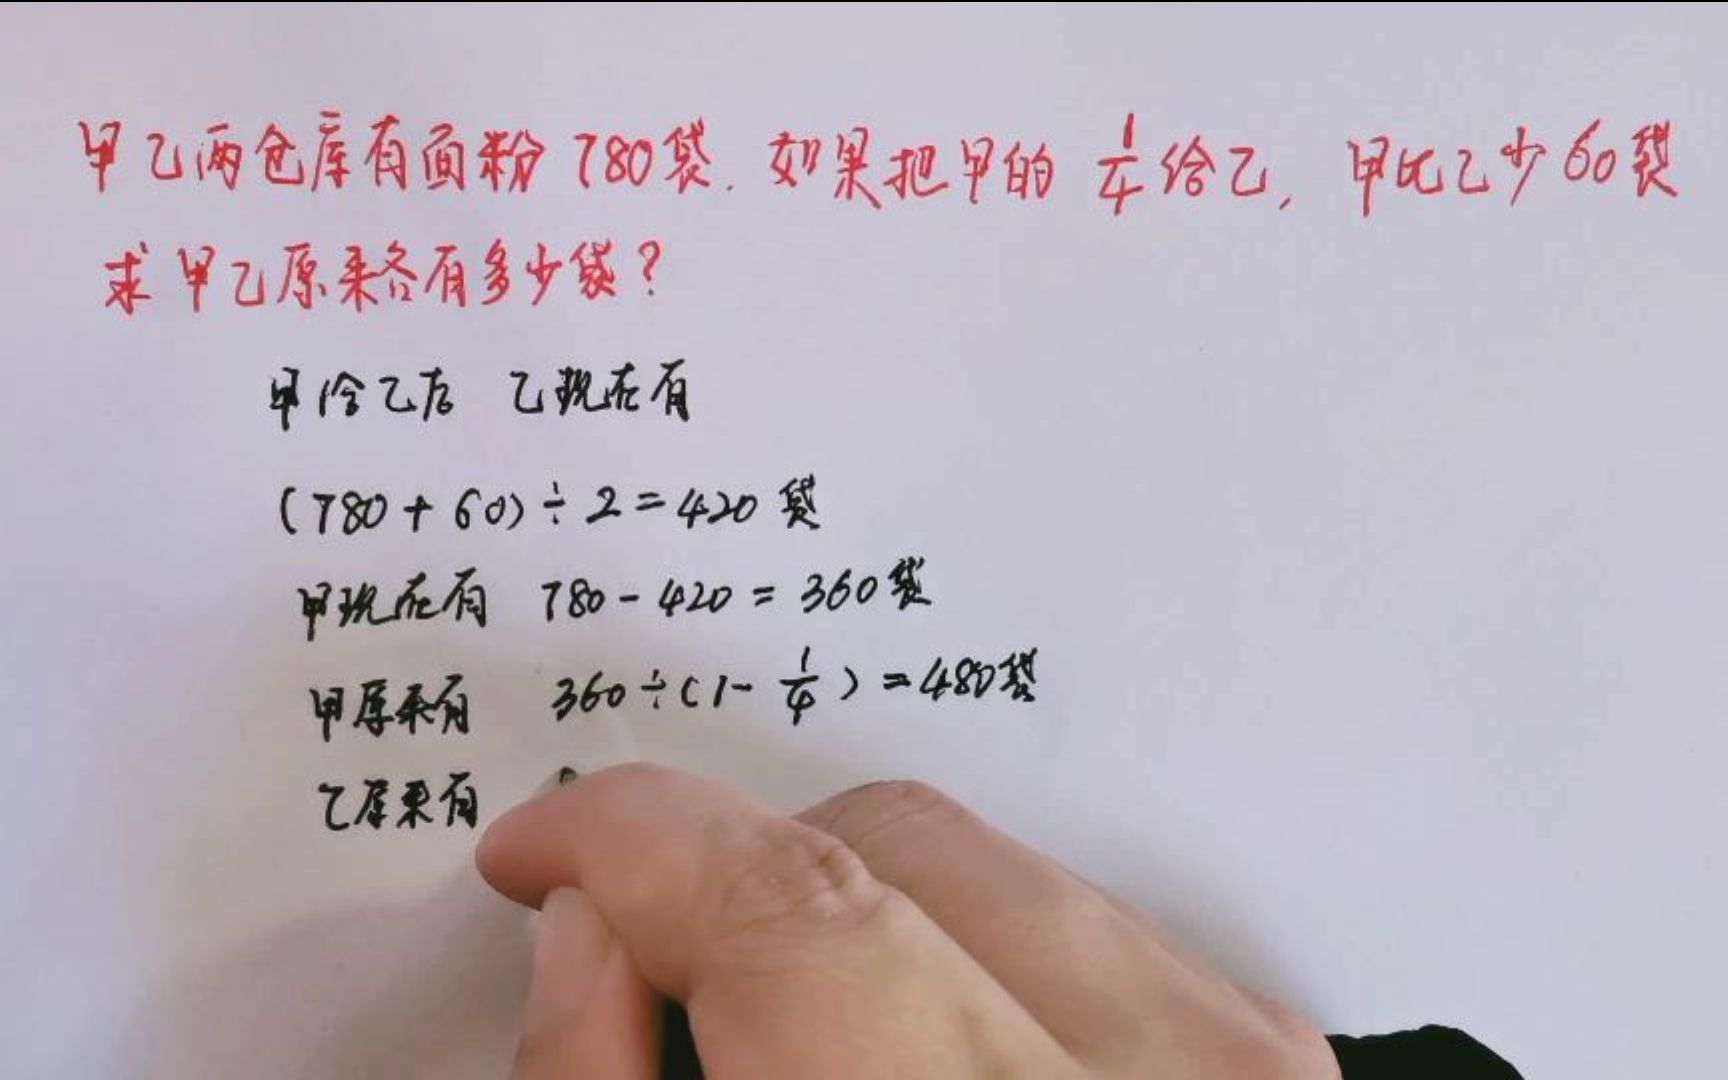 甲乙两仓库有面粉780袋.如果把甲的 1/4 给乙, 甲比乙少60袋
求甲乙原来各有多少袋?
甲给乙后 乙现在有
(780+60)÷2=420袋
甲现在有 780-420=360袋
甲原来有 360÷(1-1/4)=480袋
乙原来有